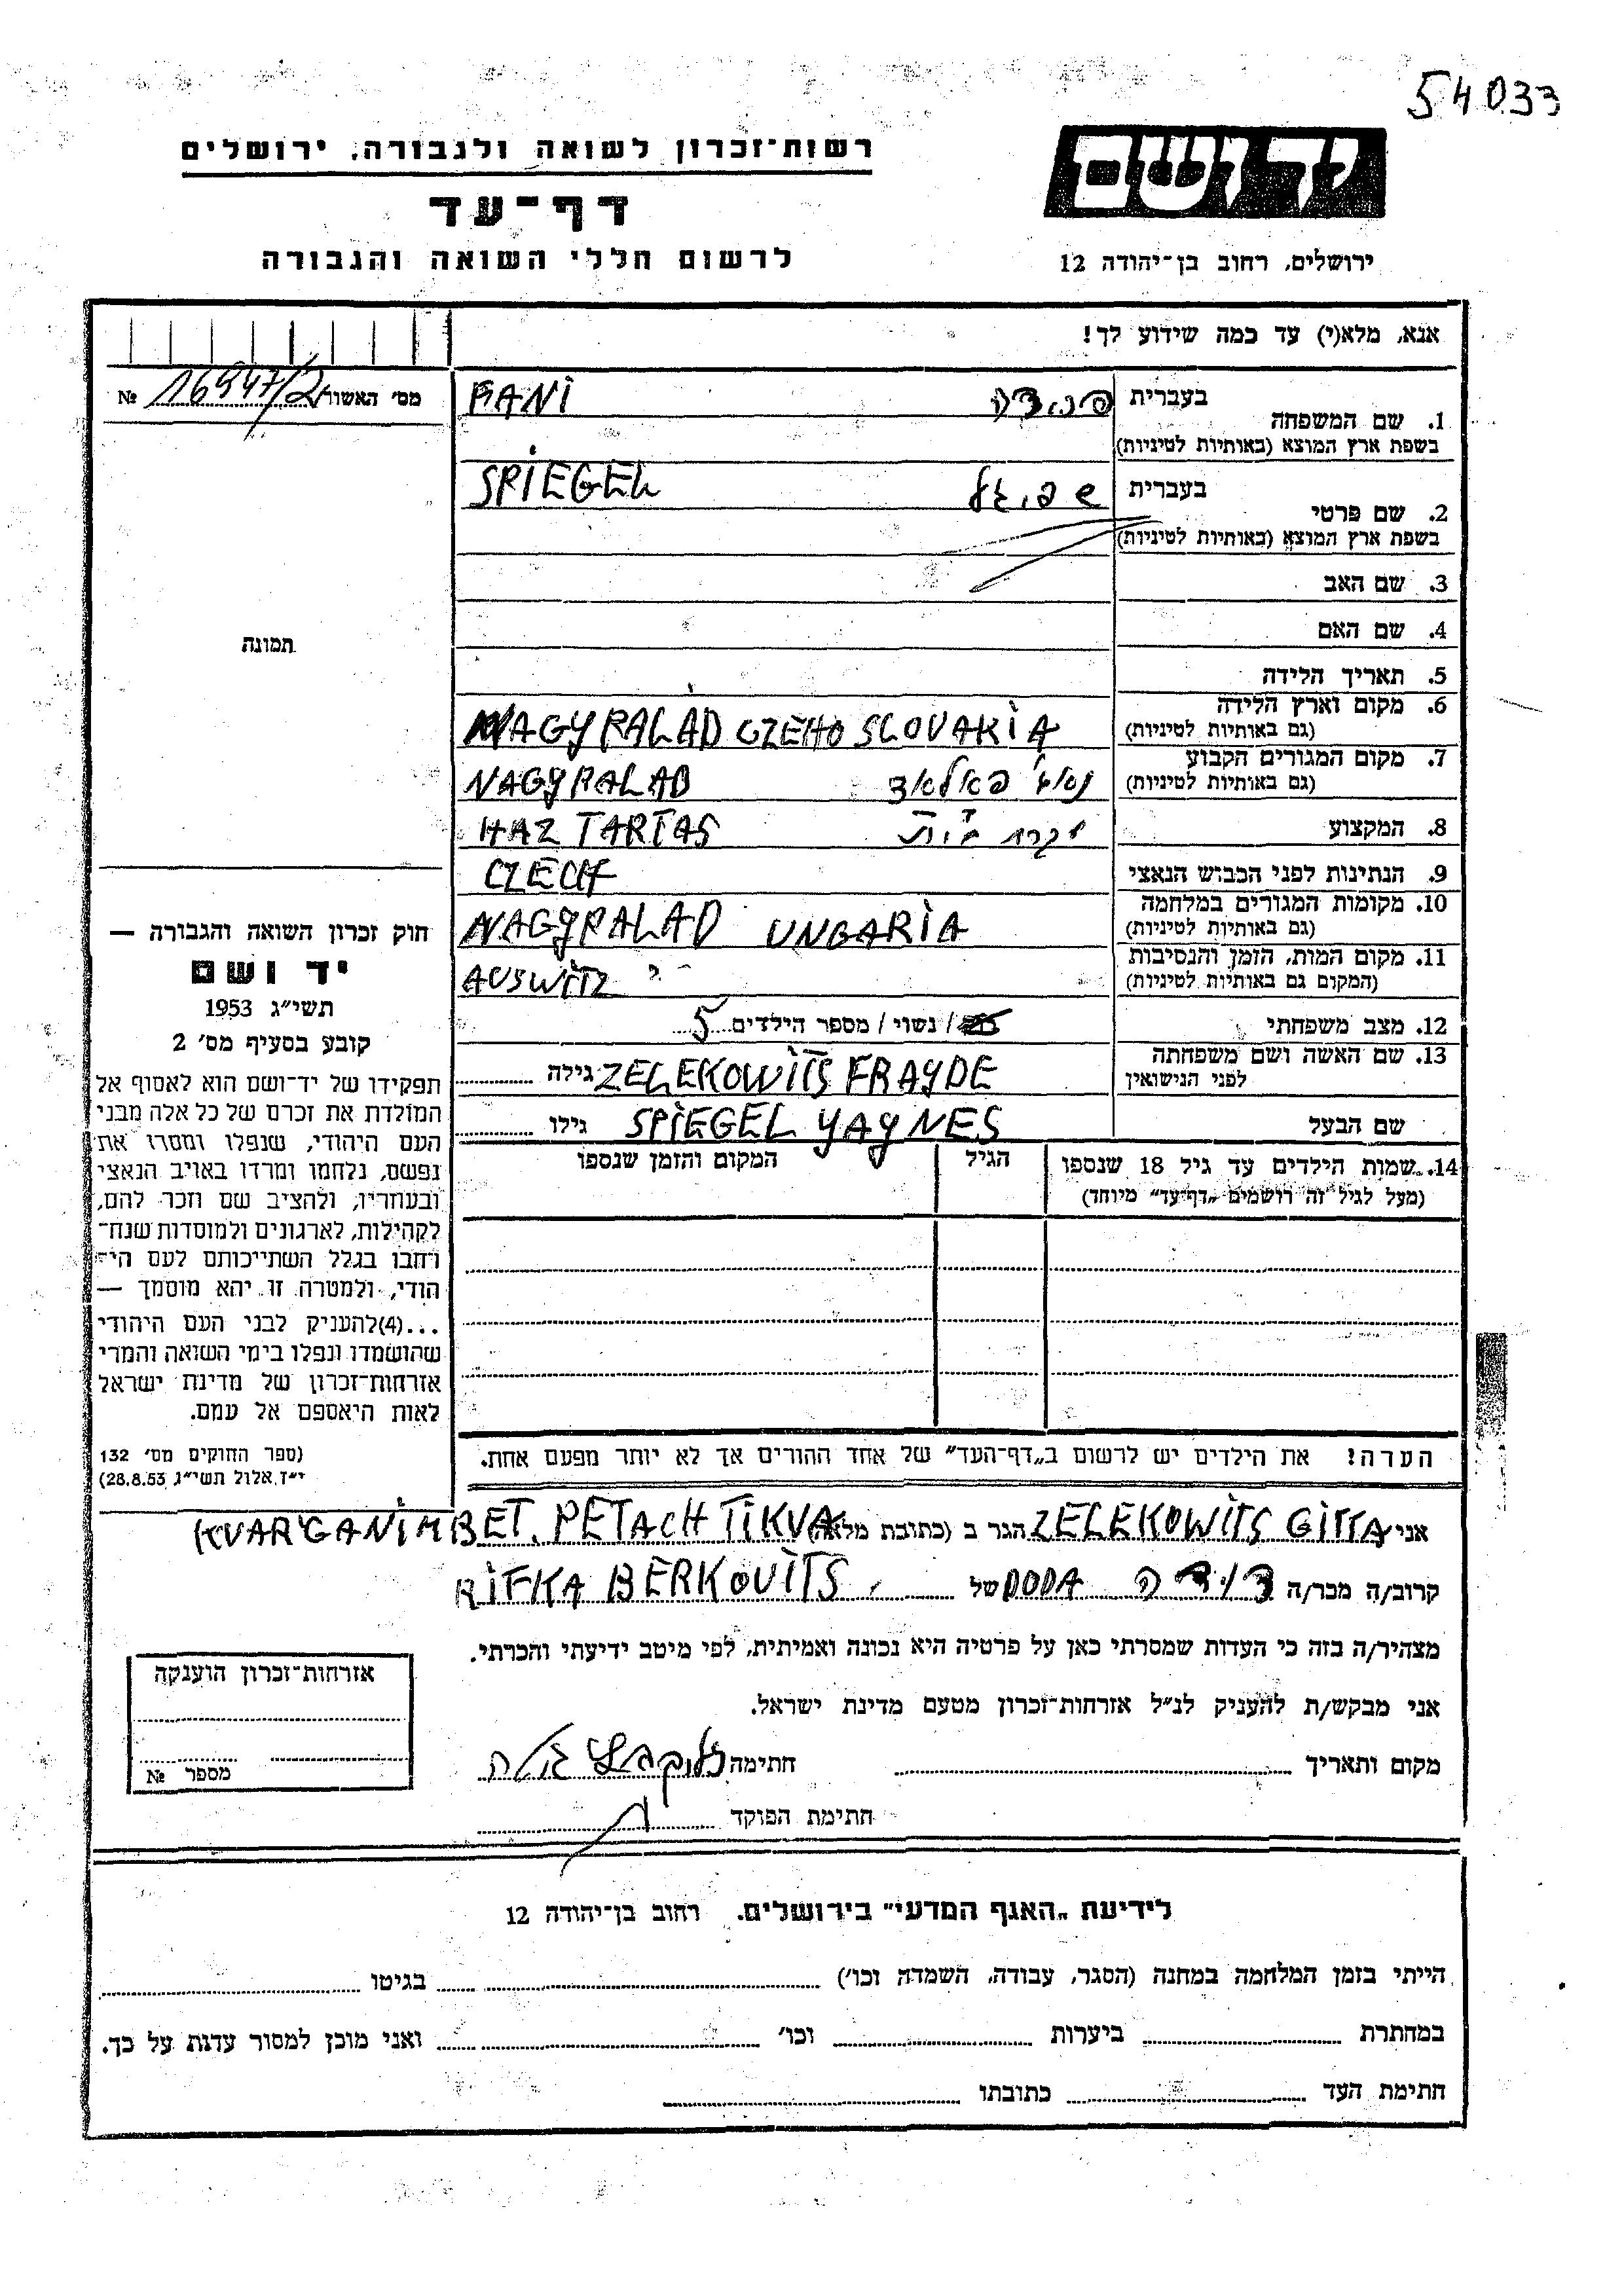 54033
רשות־זכרון לשואה ולגבורה, ירושלים
דף־עד
לרשום חללי השואה והגבורה
יד ושם
ירושלים, רחוב בן־יהודה 12
אנא, מלא(י) עד כמה שידוע לך!
מס' האשור 16947/2 №
1. שם המשפחה
בעברית
FANI
בשפת ארץ המוצא (באותיות לטיניות)
2. שם פרטי
בעברית שפיגל SPIEGEL
בשפת ארץ המוצא (באותיות לטיניות)
3. שם האב
4. שם האם
5. תאריך הלידה
6. מקום וארץ הלידה
(גם באותיות לטיניות)
NAGYPALAD CZEHOSLOVAKIA
7. מקום המגורים הקבוע
(גם באותיות לטיניות)
פאלאד NAGYPALAD
8. המקצוע
HAZTARTAS
9. הנתינות לפני הכבוש הנאצי
CZECH
10. מקומות המגורים במלחמה
(גם באותיות לטיניות)
NAGYPALAD UNGARIA
11. מקום המות, הזמן והנסיבות
(המקום גם באותיות לטיניות)
AUSWITZ
12. מצב משפחתי
/ נשוי / מספר הילדים 5
13. שם האשה ושם משפחתה
לפני הנישואין
ZELEKOWITS FRAYDE גילה
שם הבעל
SPIEGEL YAYNES גילו
14. שמות הילדים עד גיל 18 שנספו
(מעל לגיל זה רושמים „דף־עד" מיוחד)
הגיל
המקום והזמן שנספו
תמונה
חוק זכרון השואה והגבורה —
יד ושם
תשי״ג 1953
קובע בסעיף מס' 2
תפקידו של יד־ושם הוא לאסוף אל
המולדת את זכרם של כל אלה מבני
העם היהודי, שנפלו ומסרו את
נפשם, נלחמו ומרדו באויב הנאצי
ובעוזריו, ולהציב שם וזכר להם,
לקהילות, לארגונים ולמוסדות שנח־
רבו בגלל השתייכותם לעם הי־
הודי, ולמטרה זו יהא מוסמך —
...(4)להעניק לבני העם היהודי
שהושמדו ונפלו בימי השואה והמרי
אזרחות־זכרון של מדינת ישראל
לאות היאספם אל עמם.
(ספר החוקים מס' 132
י״ז אלול תשי״ג 28.8.53)
הערה! את הילדים יש לרשום ב„דף־העד" של אחד ההורים אך לא יותר מפעם אחת.
אני ZELEKOWITS GITTA הגר ב (כתובת מלאה) KVAR GANIM BET, PETACH TIKVA
קרוב/ה מכר/ה דודה DODA של RIFKA BERKOVITS
מצהיר/ה בזה כי העדות שמסרתי כאן על פרטיה היא נכונה ואמיתית, לפי מיטב ידיעתי והכרתי.
אני מבקש/ת להעניק לנ״ל אזרחות־זכרון מטעם מדינת ישראל.
מקום ותאריך חתימה
חתימת הפוקד
אזרחות־זכרון הוענקה
מספר №
לידיעת „האגף המדעי" בירושלים. רחוב בן־יהודה 12
הייתי בזמן המלחמה במחנה (הסגר, עבודה, השמדה וכו') בגיטו
במחתרת ביערות וכו' ואני מוכן למסור עדות על כך.
חתימת העד כתובתו